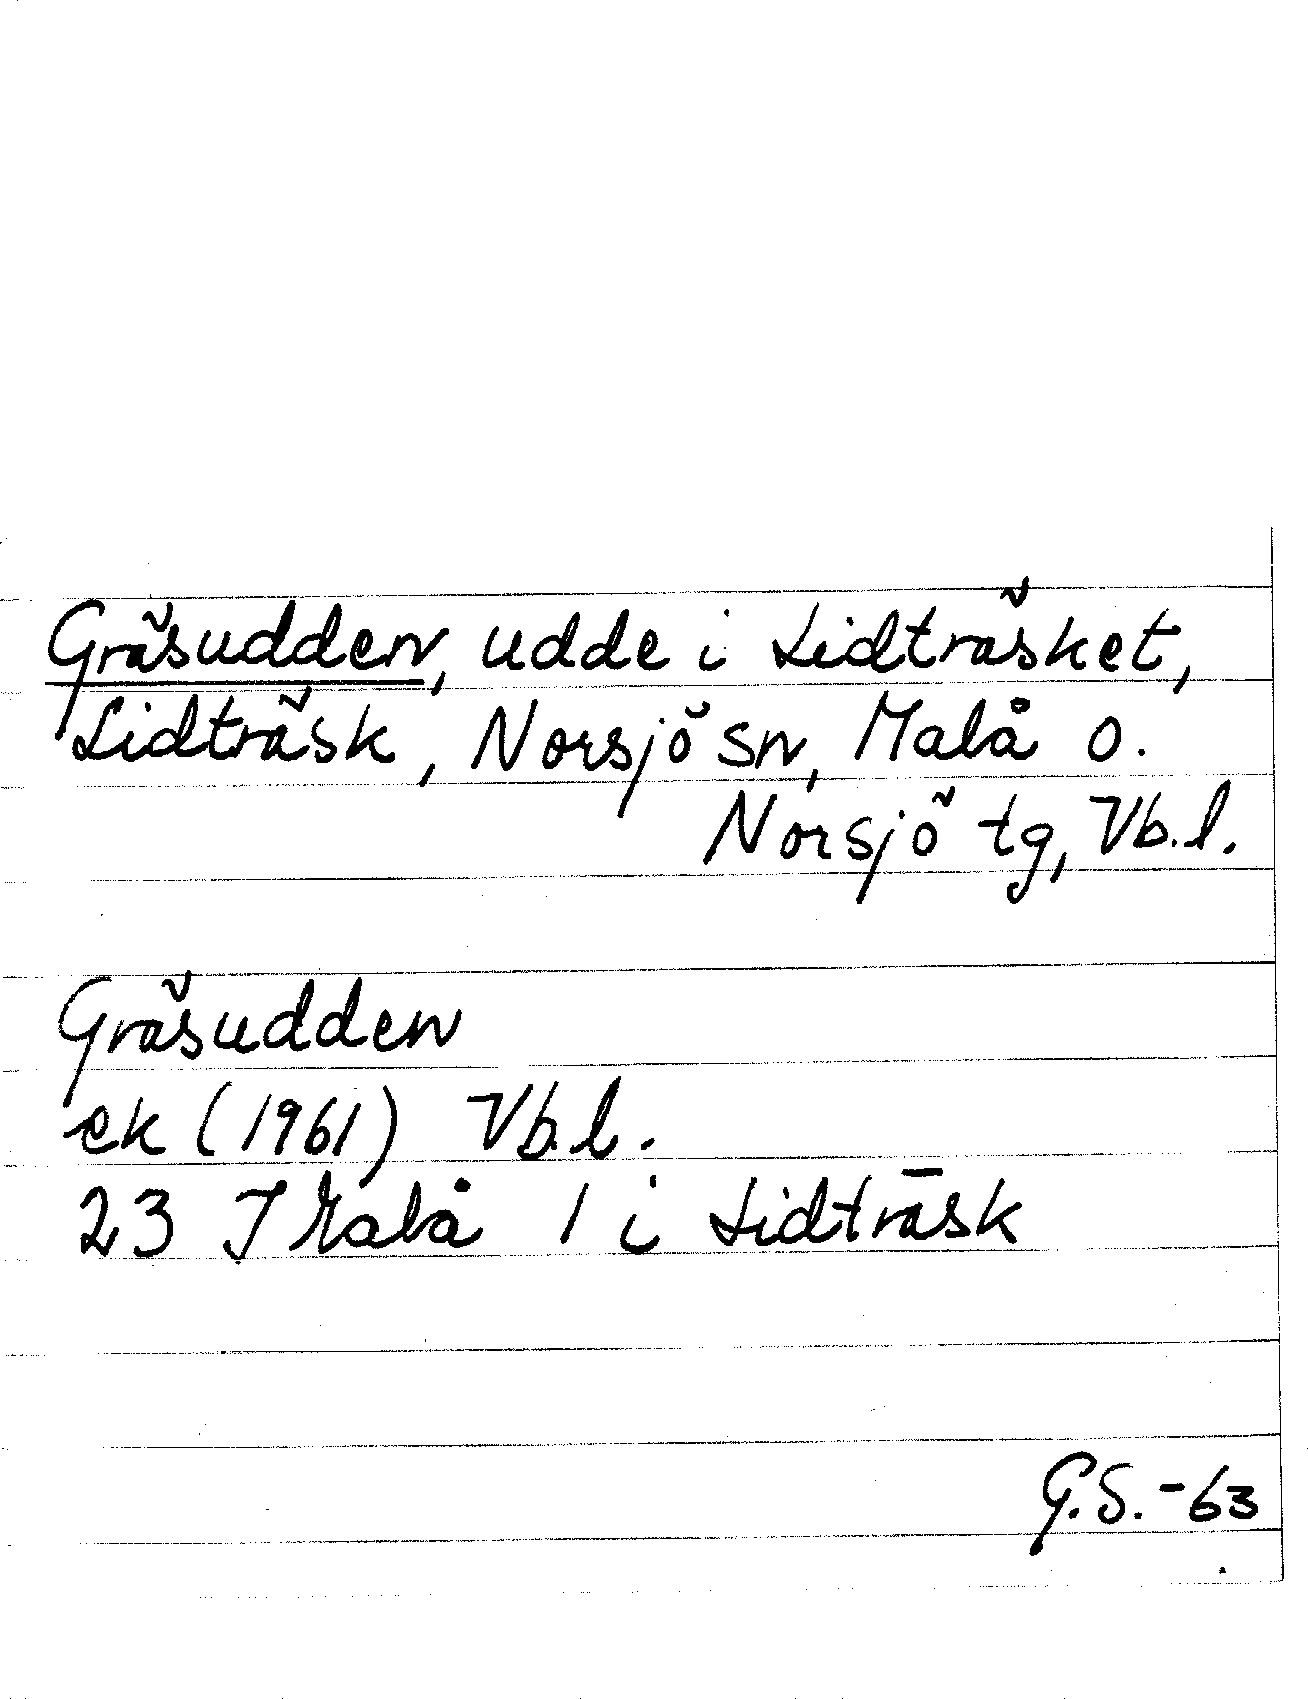 Gräsudden, udde i Lidträsket,
Lidträsk, Norsjö sn, Malå o.
Norsjö tg, Vb.l.
Gräsudden
ek (1961) Vb.l.
23 J Malå 1 i Lidträsk
G.S.-63